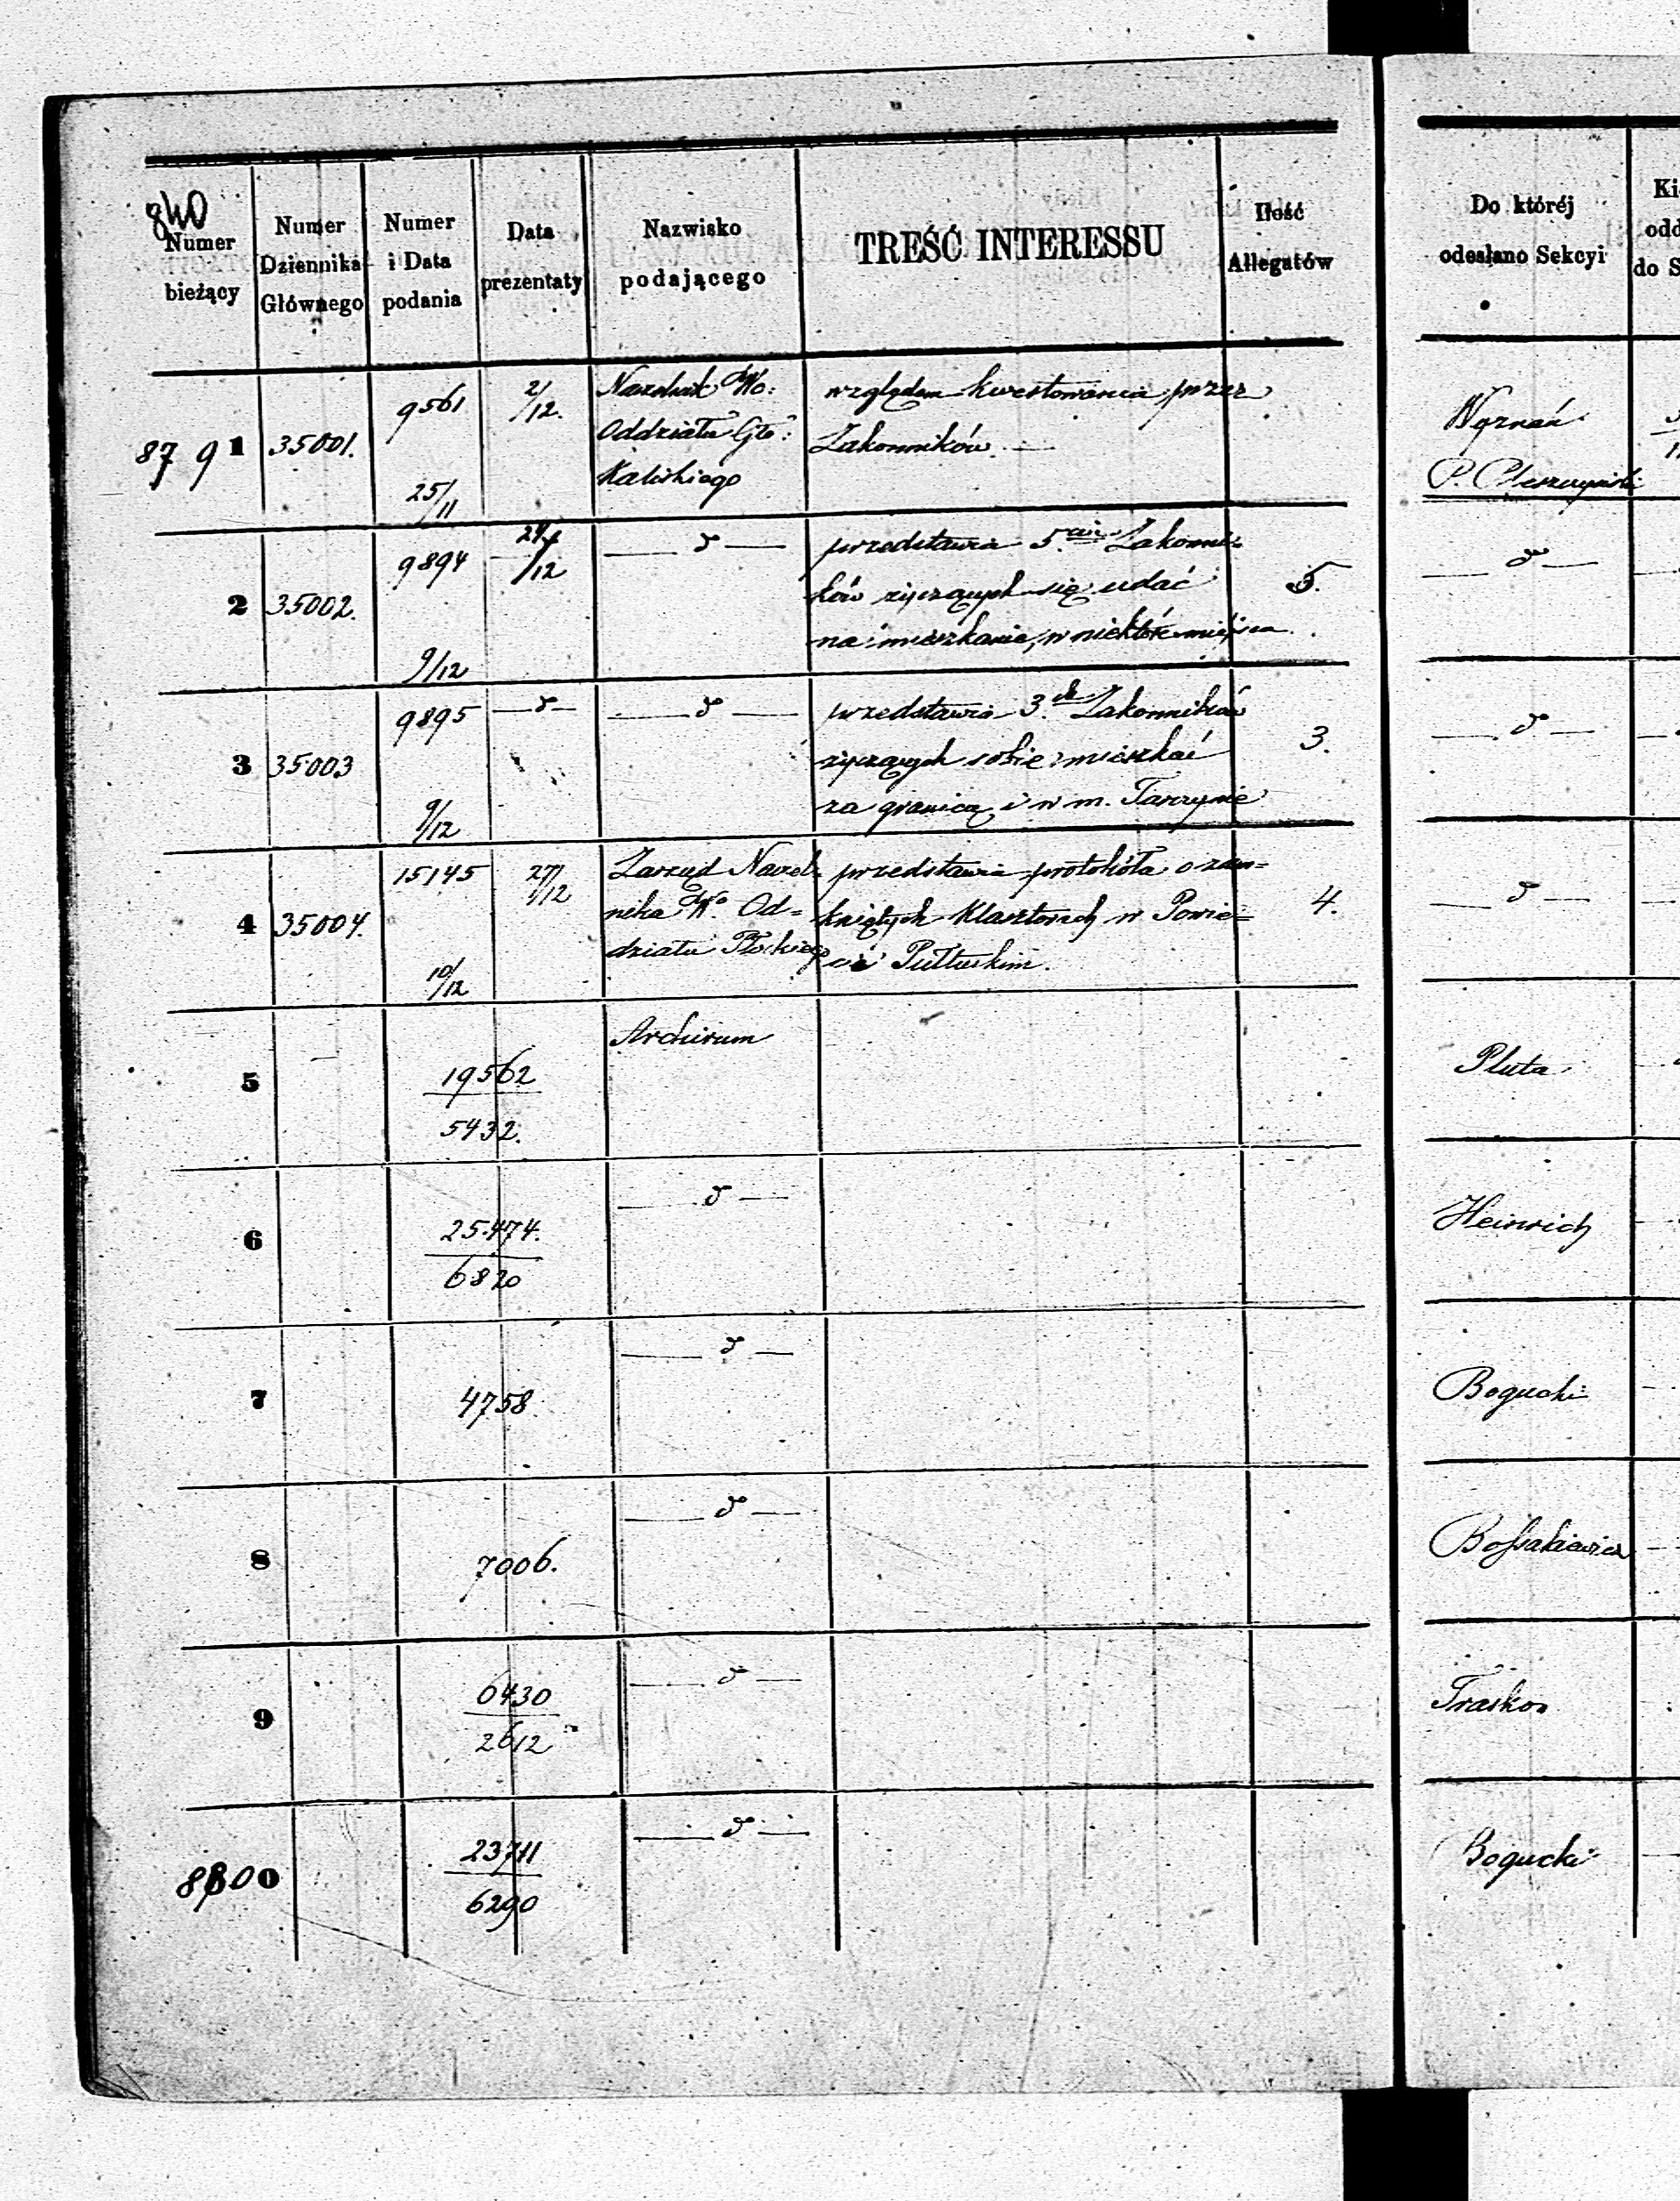 840
Numer bieżący
Numer Dziennika Głównego
Numer i Data podania
Data prezentaty
Nazwisko podającego
TREŚĆ INTERESSU
Ilość Allegatów
Do któréj odesłano Sekcyi
Ki
odd
do S
87 9 1 35001. 9561 2/12. Naczelnik Wo: względem kwestowania przez
Oddziału Gło: Zakonników. —
Kaliskiego
25/11
Wyznań
P.
2 35002. 9894 24/12 — d — przedstawia 5.ciu Zakonni- 5. — d —
ków życzących się udać
na mieszkanie, w niektóre miejsca
9/12
3 35003 9895 — d — — d — przedstawia 3.ch Zakonników 3. — d —
życzących sobie mieszkać
za granicą i w m. Tarczynie
9/12
4 35004. 15145 27/12 Zarząd Naczel- przedstawia protokóła o zam= 4. — d —
nika Wo. Od= kniętych Klasztorach w Powie=
działu Płockiego cie Pułtuskim.
10/12
5 19562 Archiwum Pluta
5432.
6 25474. — d — Heinrich
6820
7 4758 — d — Bogucki
8 7006. — d — Bossakiewicz
9 6430 — d — Traskow
2612
8800 23711 — d — Bogucki
6290